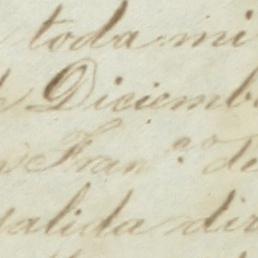 toda mi
Diciemb
Fran.co de
valida dir